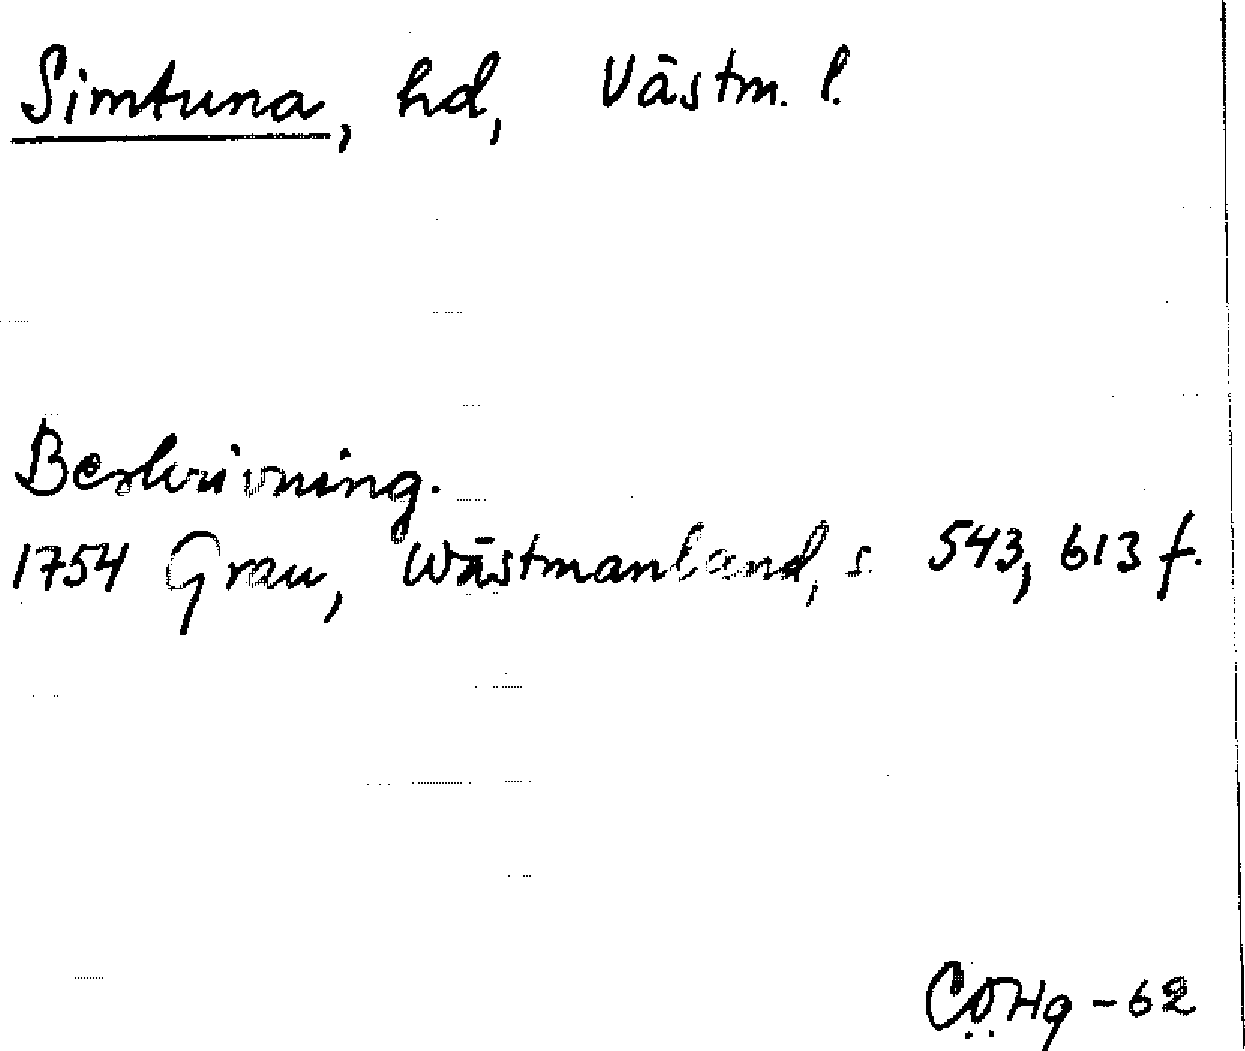 Simtuna, hd, Västm. l.
Beskrivning.
1754 Grau, Wästmanland, s. 543, 613 f.
-62